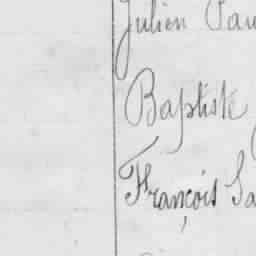 Julien Pau
Baptiste
François Sa